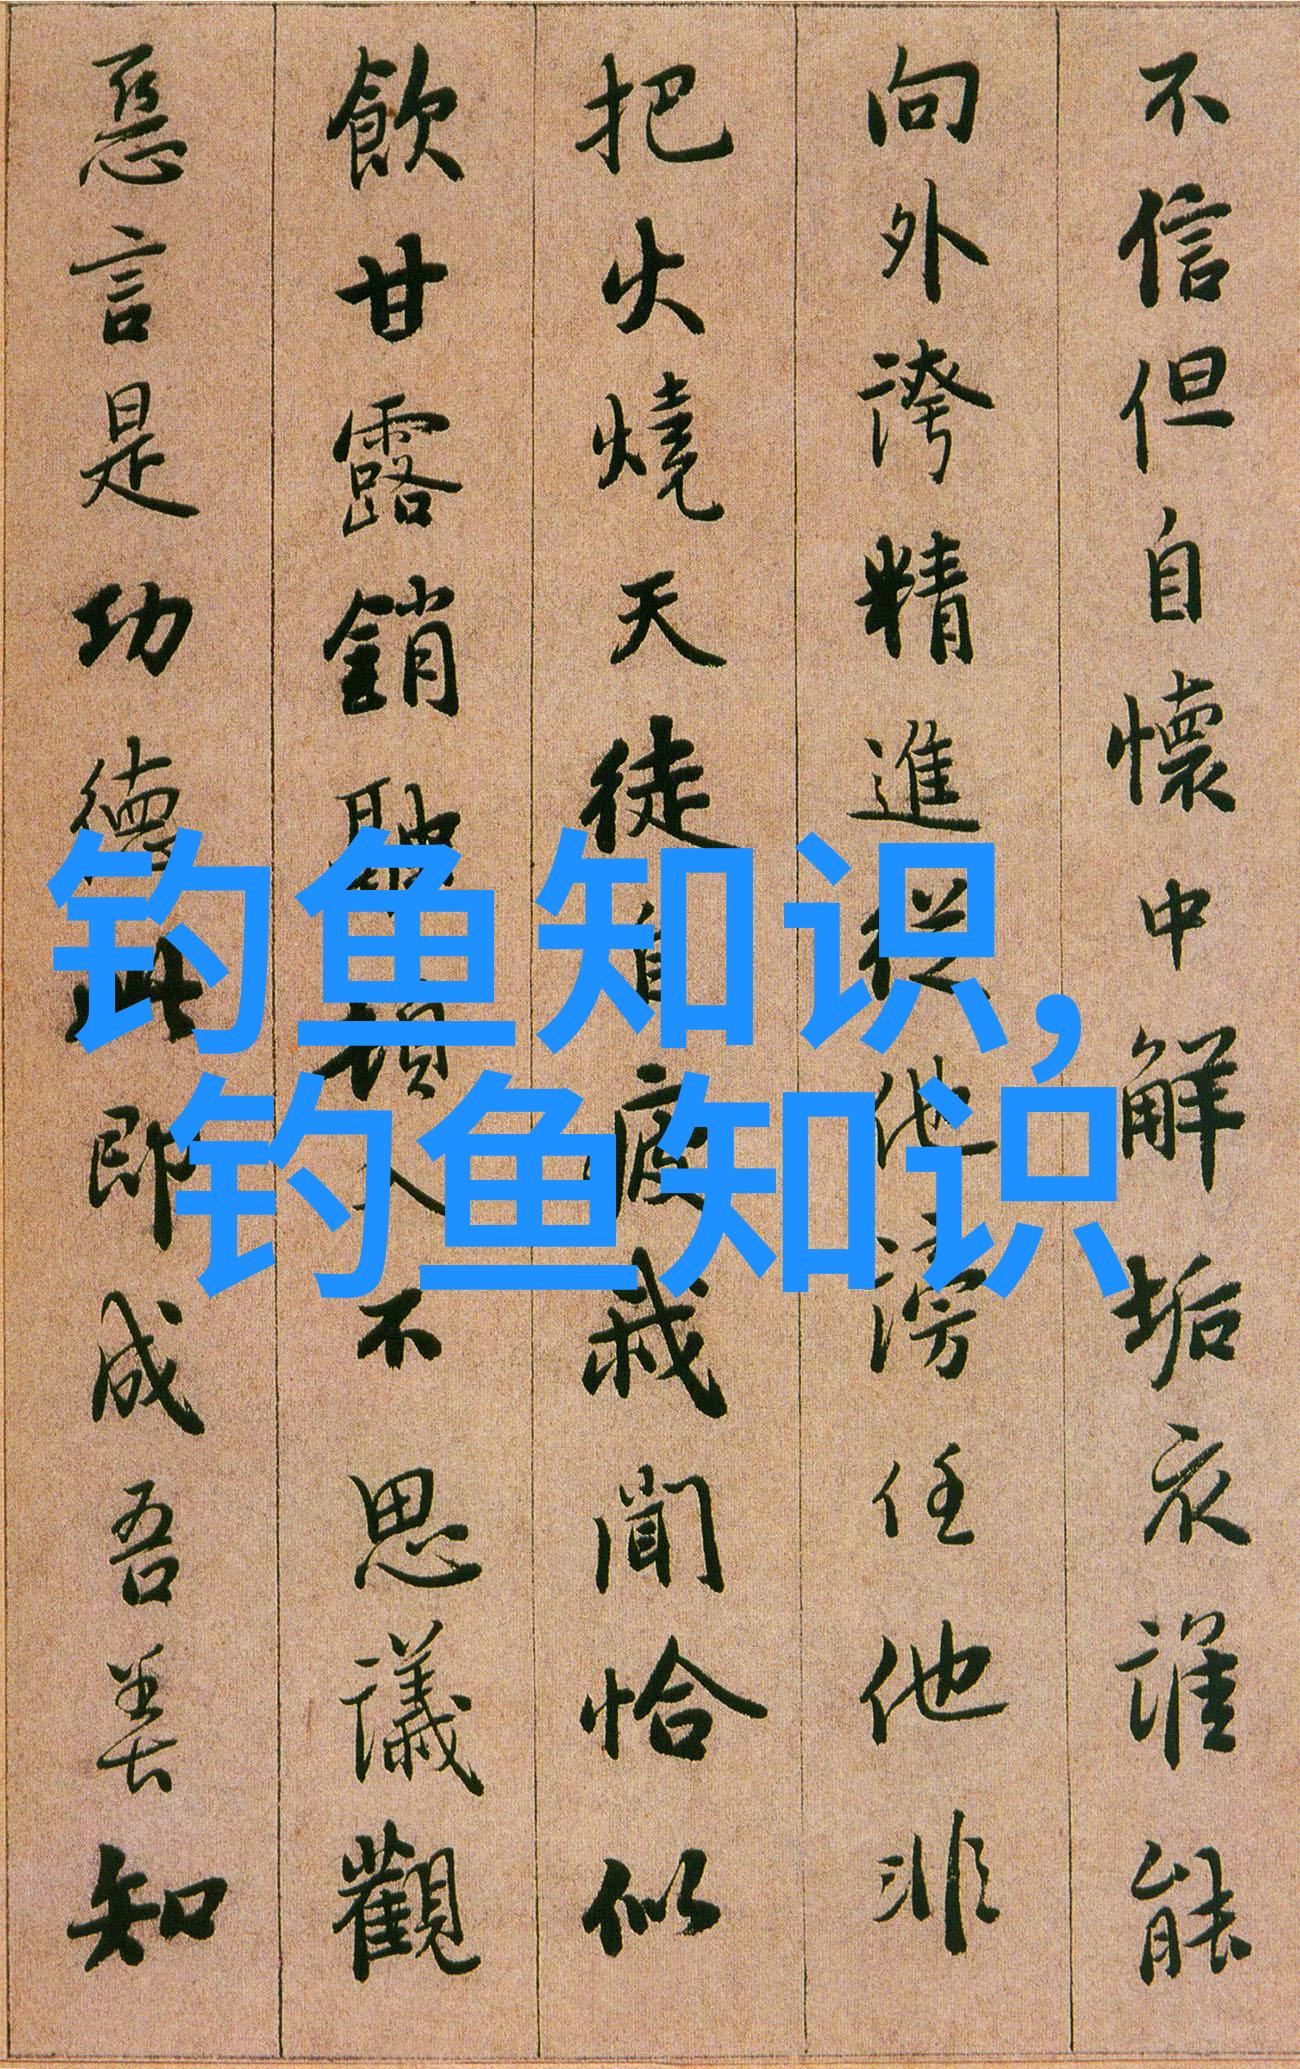 不信但自懷中解垢衣誰能
向外誇精進從他謗任他非
把火燒天徒自疲我聞恰似
飲甘露銷頓入不思議觀
惡言是功德此即成吾善知
钓鱼知识,
钓鱼知识